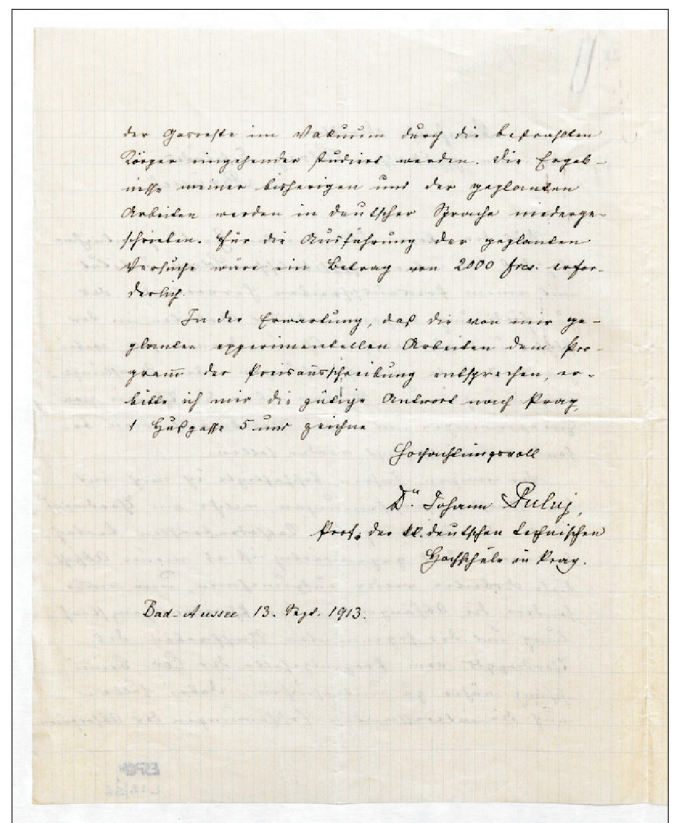 der Gasreste im Vakuum durch die bestrahlten
Körper eingehender studiert werden. Die Ergeb-
nisse meiner bisherigen und der geplanten
Arbeiten werden in deutscher Sprache niederge-
schrieben. Für die Ausführung der geplanten
Versuche wäre ein Betrag von 2000 frcs. erfor-
derlich
In der Erwartung, daß die von mir ge-
planten experimentellen Arbeiten dem Pro-
gramm der Preisausschreibung entsprechen, er-
bitte ich mir die gütige Antwort nach Prag,
1 Hußgasse 5 und zeichne
Hochachtungsvoll
Dr. Johann Puluj,
Prof. der k.k. deutschen technischen
Hochschule in Prag.
Bad-Aussee 13. Sept. 1913.